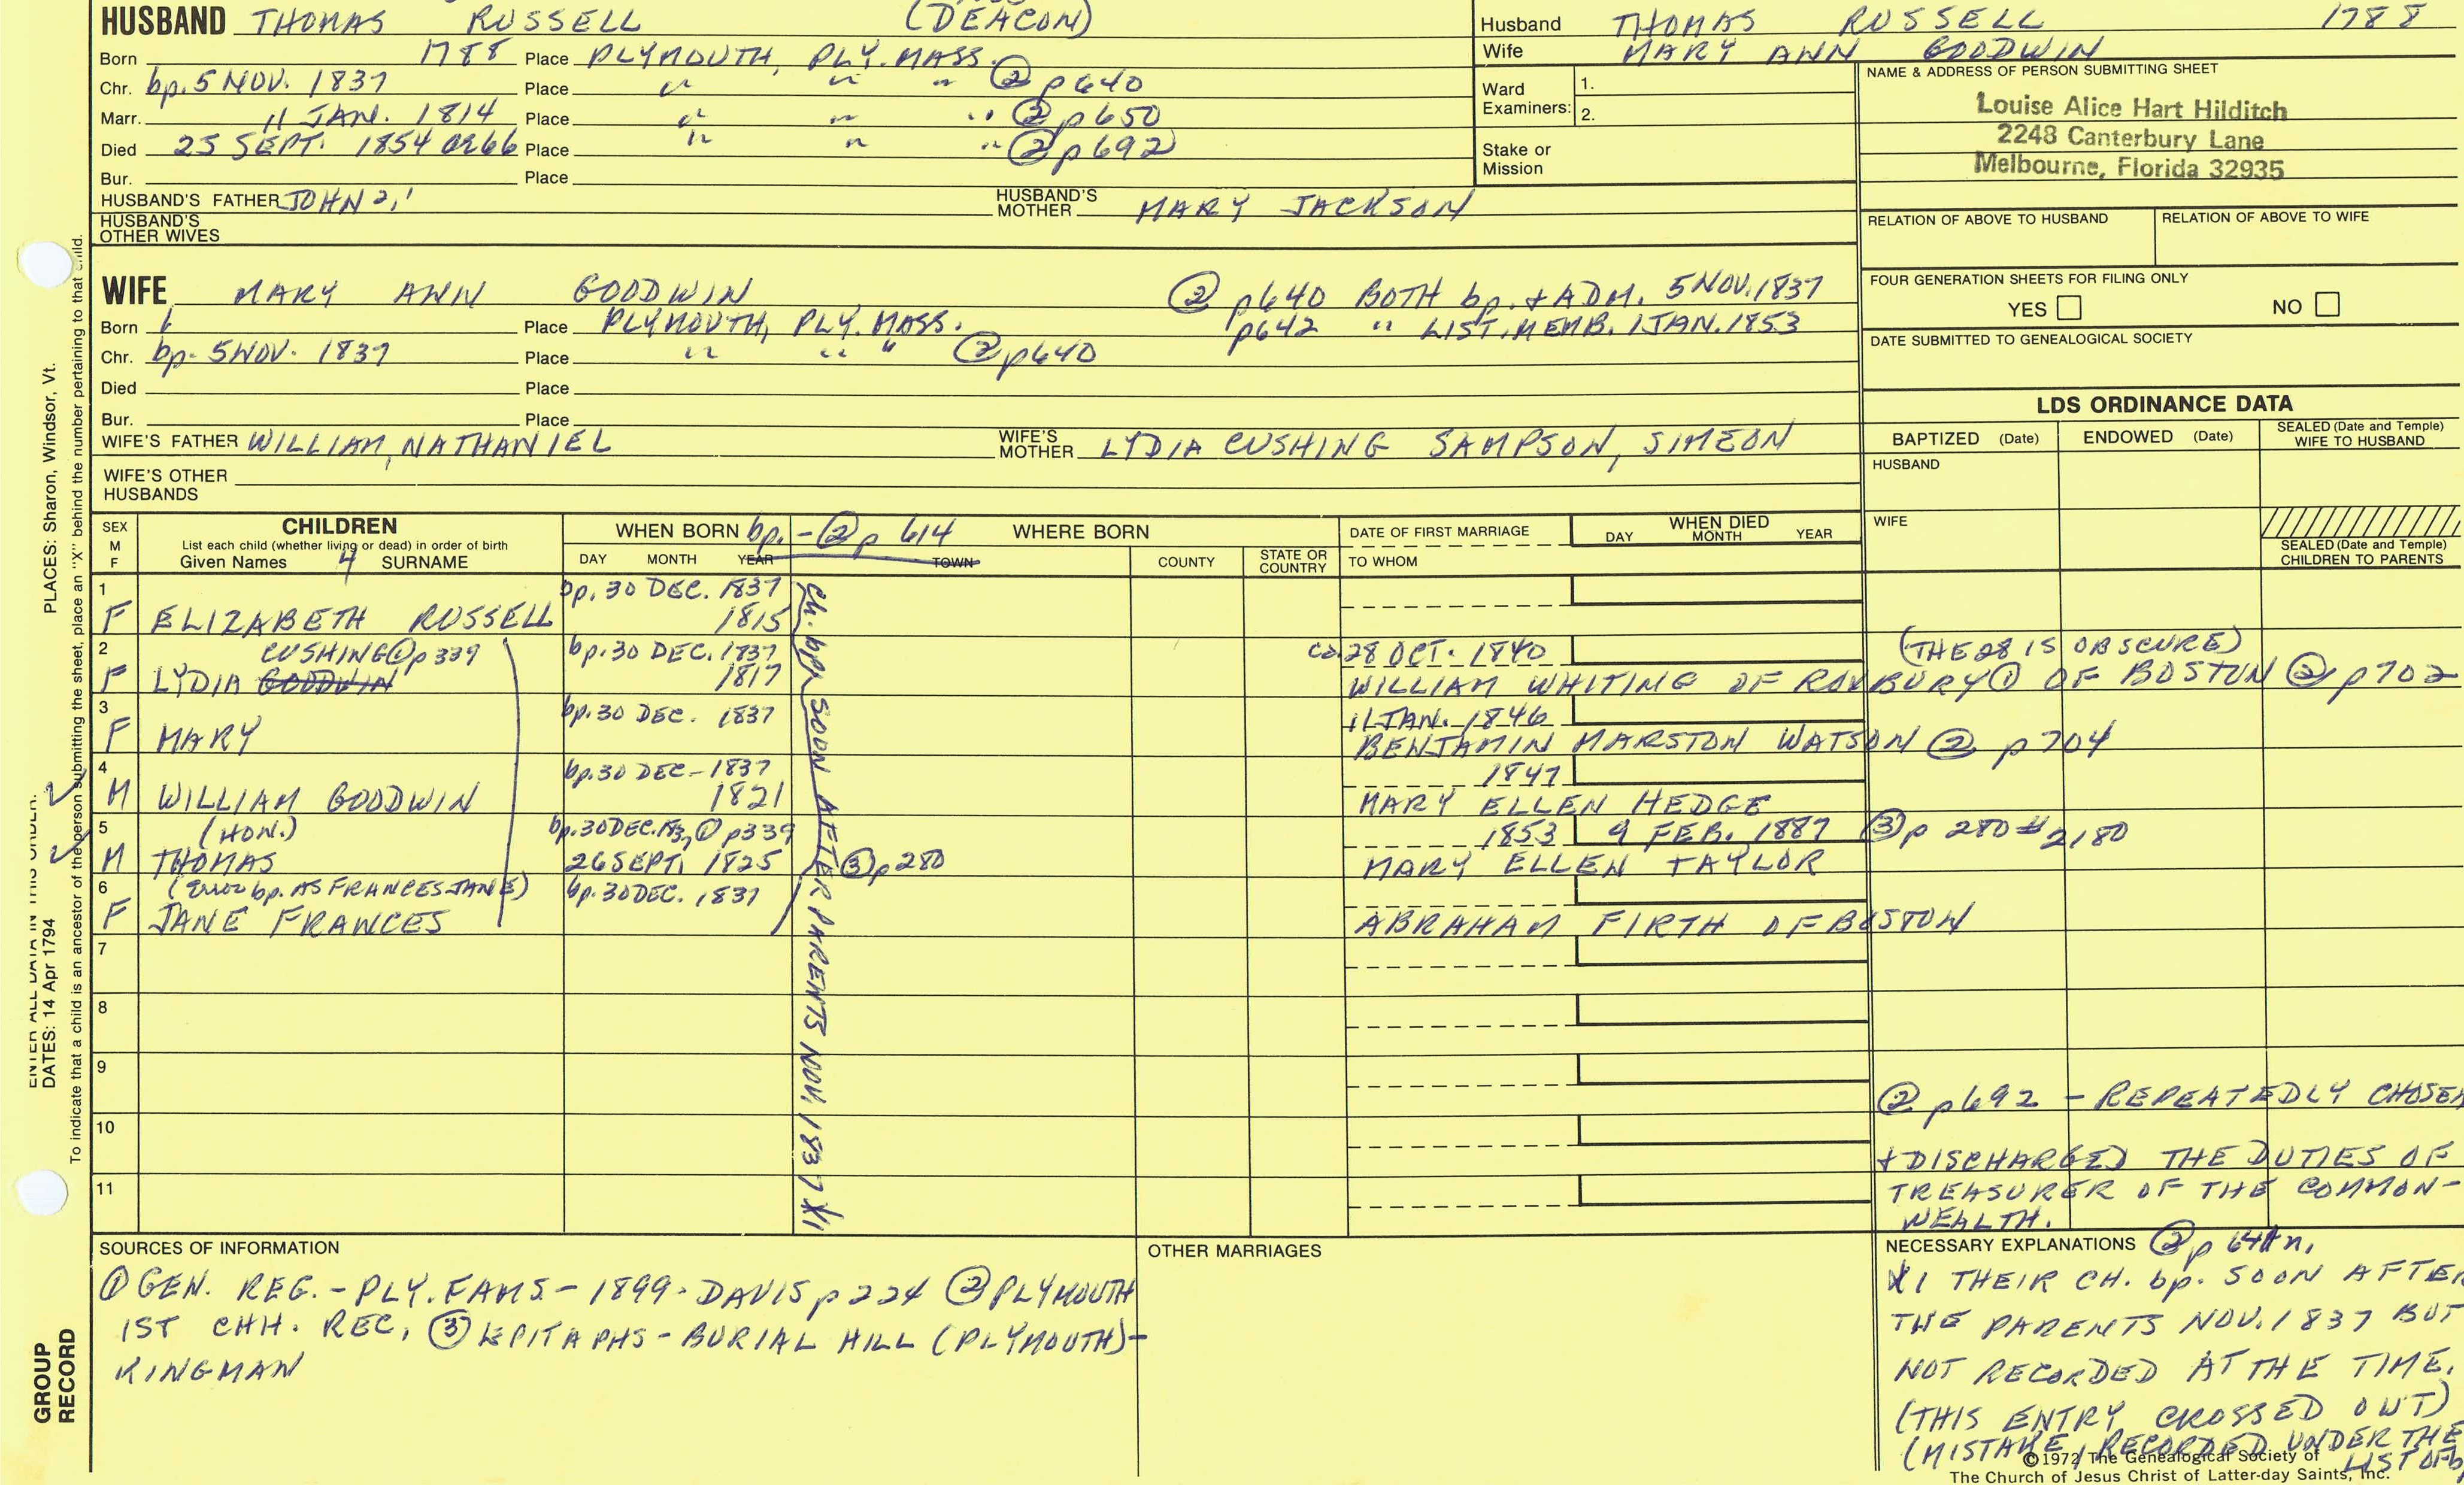 HUSBAND THOMAS RUSSELL (DEACON)
Born 1788 Place PLYMOUTH, PLY. MASS.
Chr. bp. 5 NOV. 1837 Place " " " ② p640
Marr. 11 JAN. 1814 Place " " " ② p650
Died 25 SEPT. 1854 OR 66 Place " " " ② p692
Bur. Place
HUSBAND'S FATHER JOHN HUSBAND'S MOTHER MARY JACKSON
HUSBAND'S OTHER WIVES
Husband THOMAS RUSSELL 1788
Wife MARY ANN GOODWIN
Ward Examiners: 1.
2.
Stake or Mission
NAME & ADDRESS OF PERSON SUBMITTING SHEET
Louise Alice Hart Hilditch
2248 Canterbury Lane
Melbourne, Florida 32935
RELATION OF ABOVE TO HUSBAND RELATION OF ABOVE TO WIFE
FOUR GENERATION SHEETS FOR FILING ONLY
YES NO
DATE SUBMITTED TO GENEALOGICAL SOCIETY
WIFE MARY ANN GOODWIN ② p640 BOTH bp. + ADM. 5 NOV. 1837
Born Place PLYMOUTH, PLY. MASS. p642 " LIST. MEMB. 1 JAN. 1853
Chr. bp. 5 NOV. 1837 Place " " " ② p640
Died Place
Bur. Place
WIFE'S FATHER WILLIAM, NATHANIEL WIFE'S MOTHER LYDIA CUSHING SAMPSON, SIMEON
WIFE'S OTHER HUSBANDS
LDS ORDINANCE DATA
BAPTIZED (Date) ENDOWED (Date) SEALED (Date and Temple) WIFE TO HUSBAND
HUSBAND
WIFE
SEALED (Date and Temple) CHILDREN TO PARENTS
SEX M F
CHILDREN
List each child (whether living or dead) in order of birth
Given Names 4 SURNAME
WHEN BORN bp. - ② p 614 WHERE BORN
DAY MONTH YEAR TOWN COUNTY STATE OR COUNTRY
DATE OF FIRST MARRIAGE
TO WHOM
WHEN DIED
DAY MONTH YEAR
1 bp. 30 DEC. 1837
F ELIZABETH RUSSELL 1815
2 CUSHING ① p339 bp. 30 DEC. 1837 ca. 28 OCT. 1840 (THE 28 IS OBSCURE)
F LYDIA GOODWIN 1817 WILLIAM WHITING OF ROXBURY ① OF BOSTON ② p702
3 bp. 30 DEC. 1837 11 JAN. 1846
F MARY BENJAMIN MARSTON WATSON ② p704
4 bp. 30 DEC - 1837 1847
M WILLIAM GOODWIN 1821 MARY ELLEN HEDGE
5 (HON.) bp. 30 DEC. ① p339 1853 9 FEB. 1887 ③ p 280 # 2180
M THOMAS 26 SEPT. 1825 ③ p280 MARY ELLEN TAYLOR
6 (Error bp. AS FRANCES JANE) bp. 30 DEC. 1837
F JANE FRANCES ABRAHAM FIRTH OF BOSTON
7
8
9
10
11
Ch. bp. SOON AFTER PARENTS NOV. 1837 X1
② p692 - REPEATEDLY CHOSEN
+ DISCHARGED THE DUTIES OF
TREASURER OF THE COMMON-
WEALTH.
SOURCES OF INFORMATION
① GEN. REG. - PLY. FAMS - 1899 - DAVIS p 224 ② PLYMOUTH
1ST CHH. REC, ③ EPITAPHS - BURIAL HILL (PLYMOUTH) -
KINGMAN
OTHER MARRIAGES
NECESSARY EXPLANATIONS
X1 THEIR CH. bp. SOON AFTER
THE PARENTS NOV. 1837 BUT
NOT RECORDED AT THE TIME.
(THIS ENTRY CROSSED OUT)
(MISTAKE, RECORDED UNDER THE
LIST OF
©1972 The Genealogical Society of
The Church of Jesus Christ of Latter-day Saints, Inc.
PLACES: Sharon, Windsor, Vt.
To indicate that a child is an ancestor of the person submitting the sheet, place an "X" behind the number pertaining to that child.
ENTER ALL DATA IN THIS ORDER:
DATES: 14 Apr 1794
GROUP
RECORD